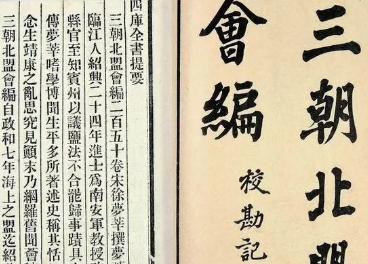 三朝北盟
會編
校勘記
四庫全書提要
三朝北盟會編二百五十卷宋徐夢莘撰夢
臨江人紹興二十四年進士為南安軍教授
縣官至知賓州以議鹽法不合罷歸事蹟具
傳夢莘嗜學博聞生平多所著述史稱其恬
念生靖康之亂思究見顛末乃網羅舊聞薈
三朝北盟會編自政和七年海上之盟迄紹